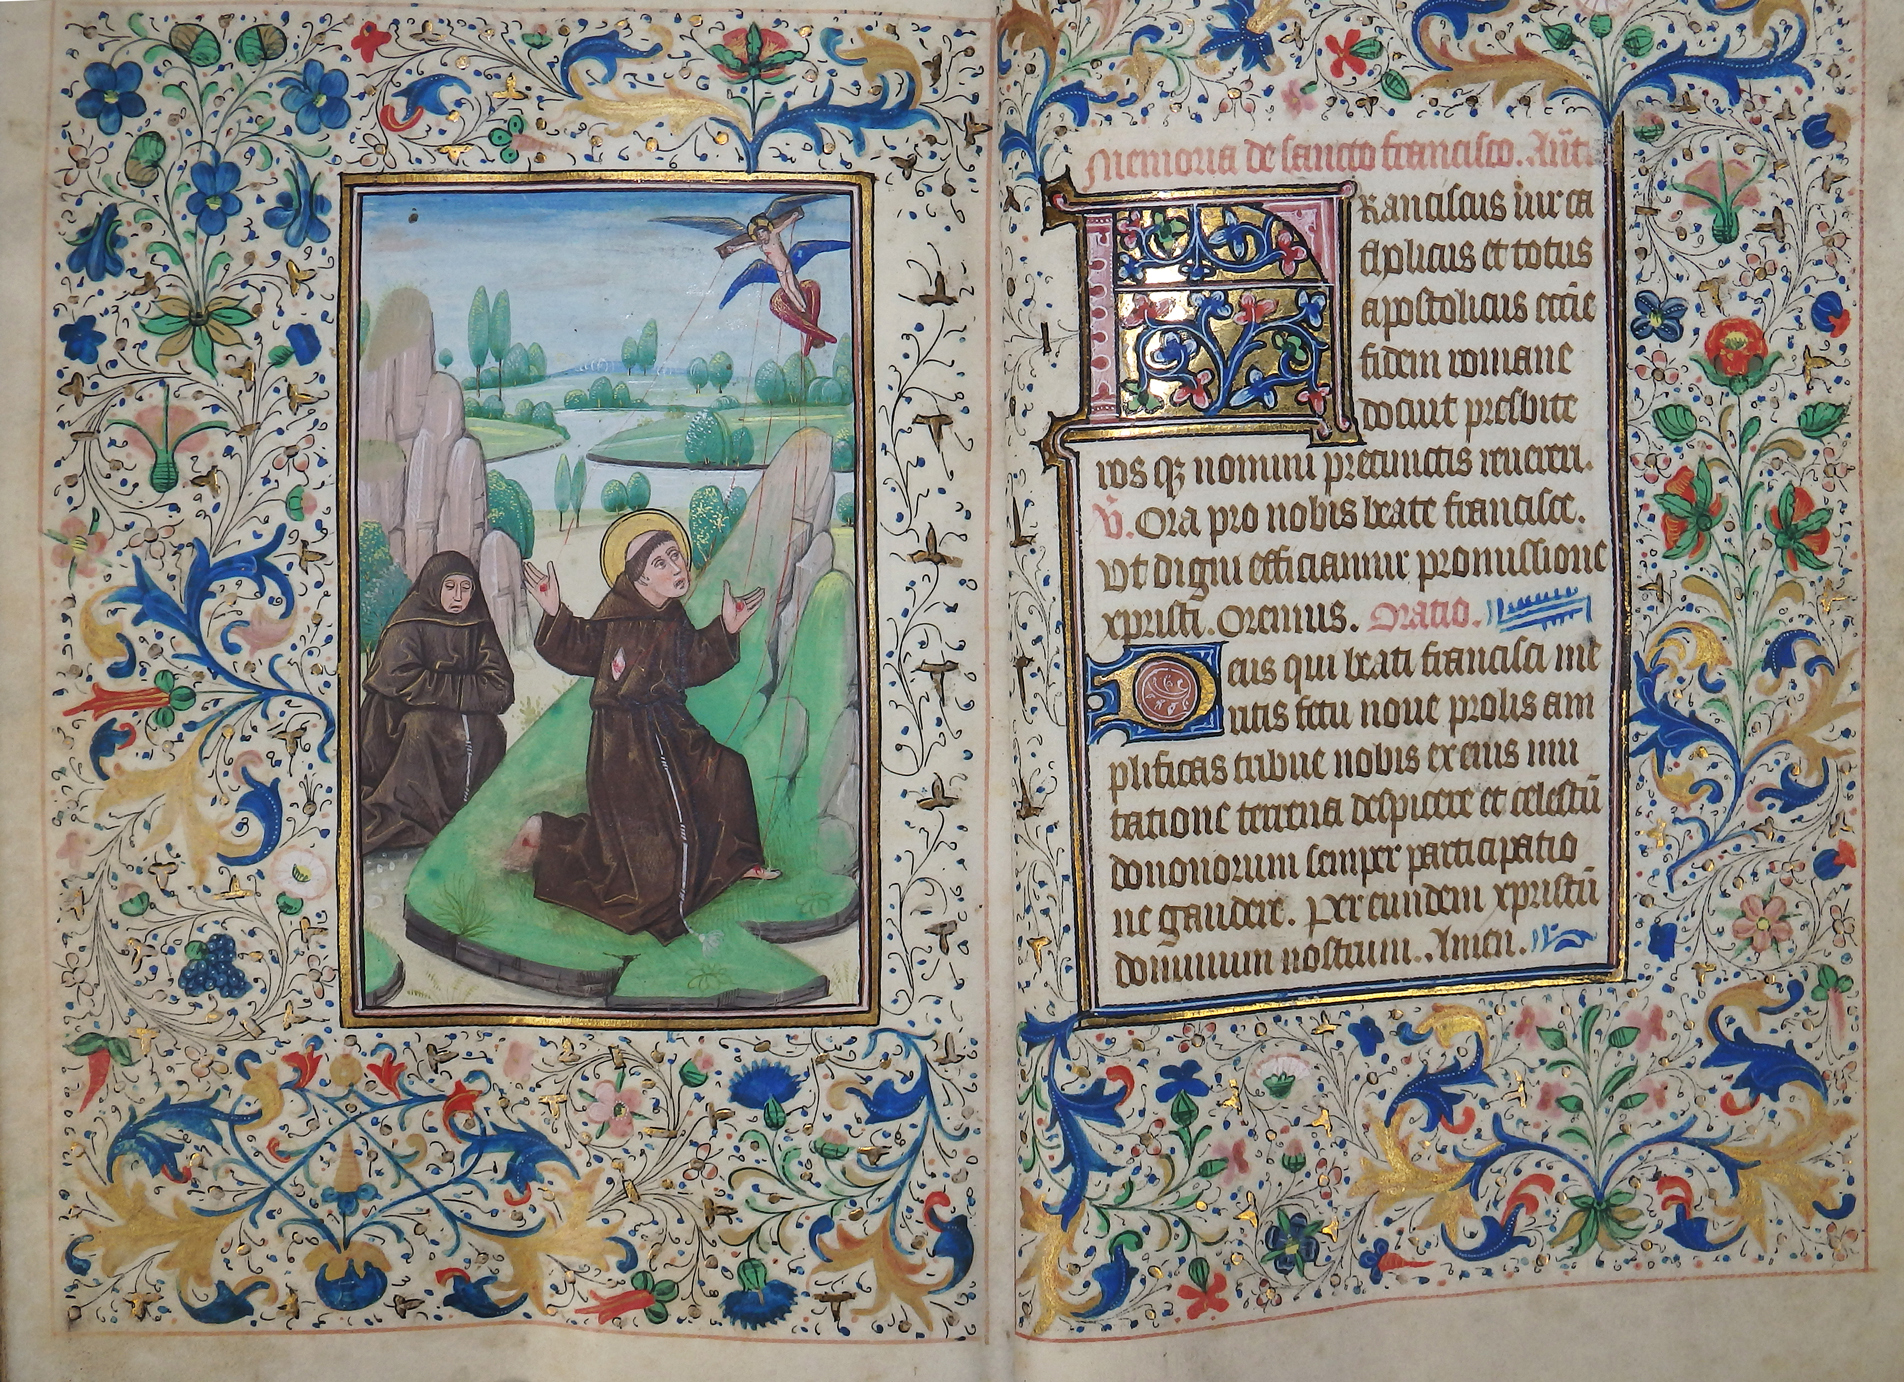 Memoria de sancto francisco. Añt
FRanciscus vir ca
tholicus et totus
apostolicus eccie
fidem romane
docuit presbite
ros qꝫ nomini precunctis reuereri.
V. Ora pro nobis beate francisce.
Vt digni efficiamur promissione
xpristi. Oremus. Oratio.
Deus qui beati francisci me
ritis fetu noue prolis am
plificas tribue nobis ex eius imi
tatione terrena despicere et celestiũ
donorum semper participatio
ne gaudere. Per eundem xpristũ
dominum nostrum. Amen.